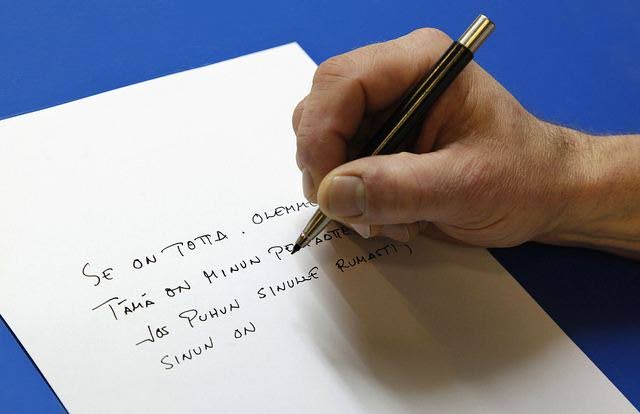 SE ON TOTTA. OLEMME
TÄMÄ ON MINUN
JOS PUHUN SINULLE RUMASTI,
SINUN ON